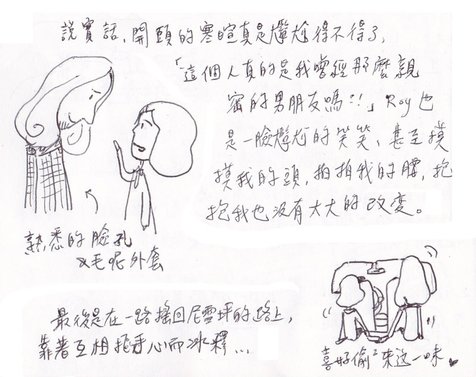 說實話，開頭的寒暄真是尷尬得不得了，
「這個人真的是我曾經那麼親
密的男朋友嗎?!」Roy也
是一臉尷尬的笑笑，甚至摸
摸我的頭，拍拍我的腰，抱
抱我也沒有太大的改變。
熟悉的臉孔
&毛呢外套
最後是在一路搖回尼雪坪的路上，
靠著互相抱手心而冰釋...
喜好偷偷來這一味